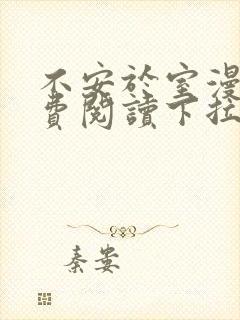 不安於室漫
費閱讀下拉
秦嶴